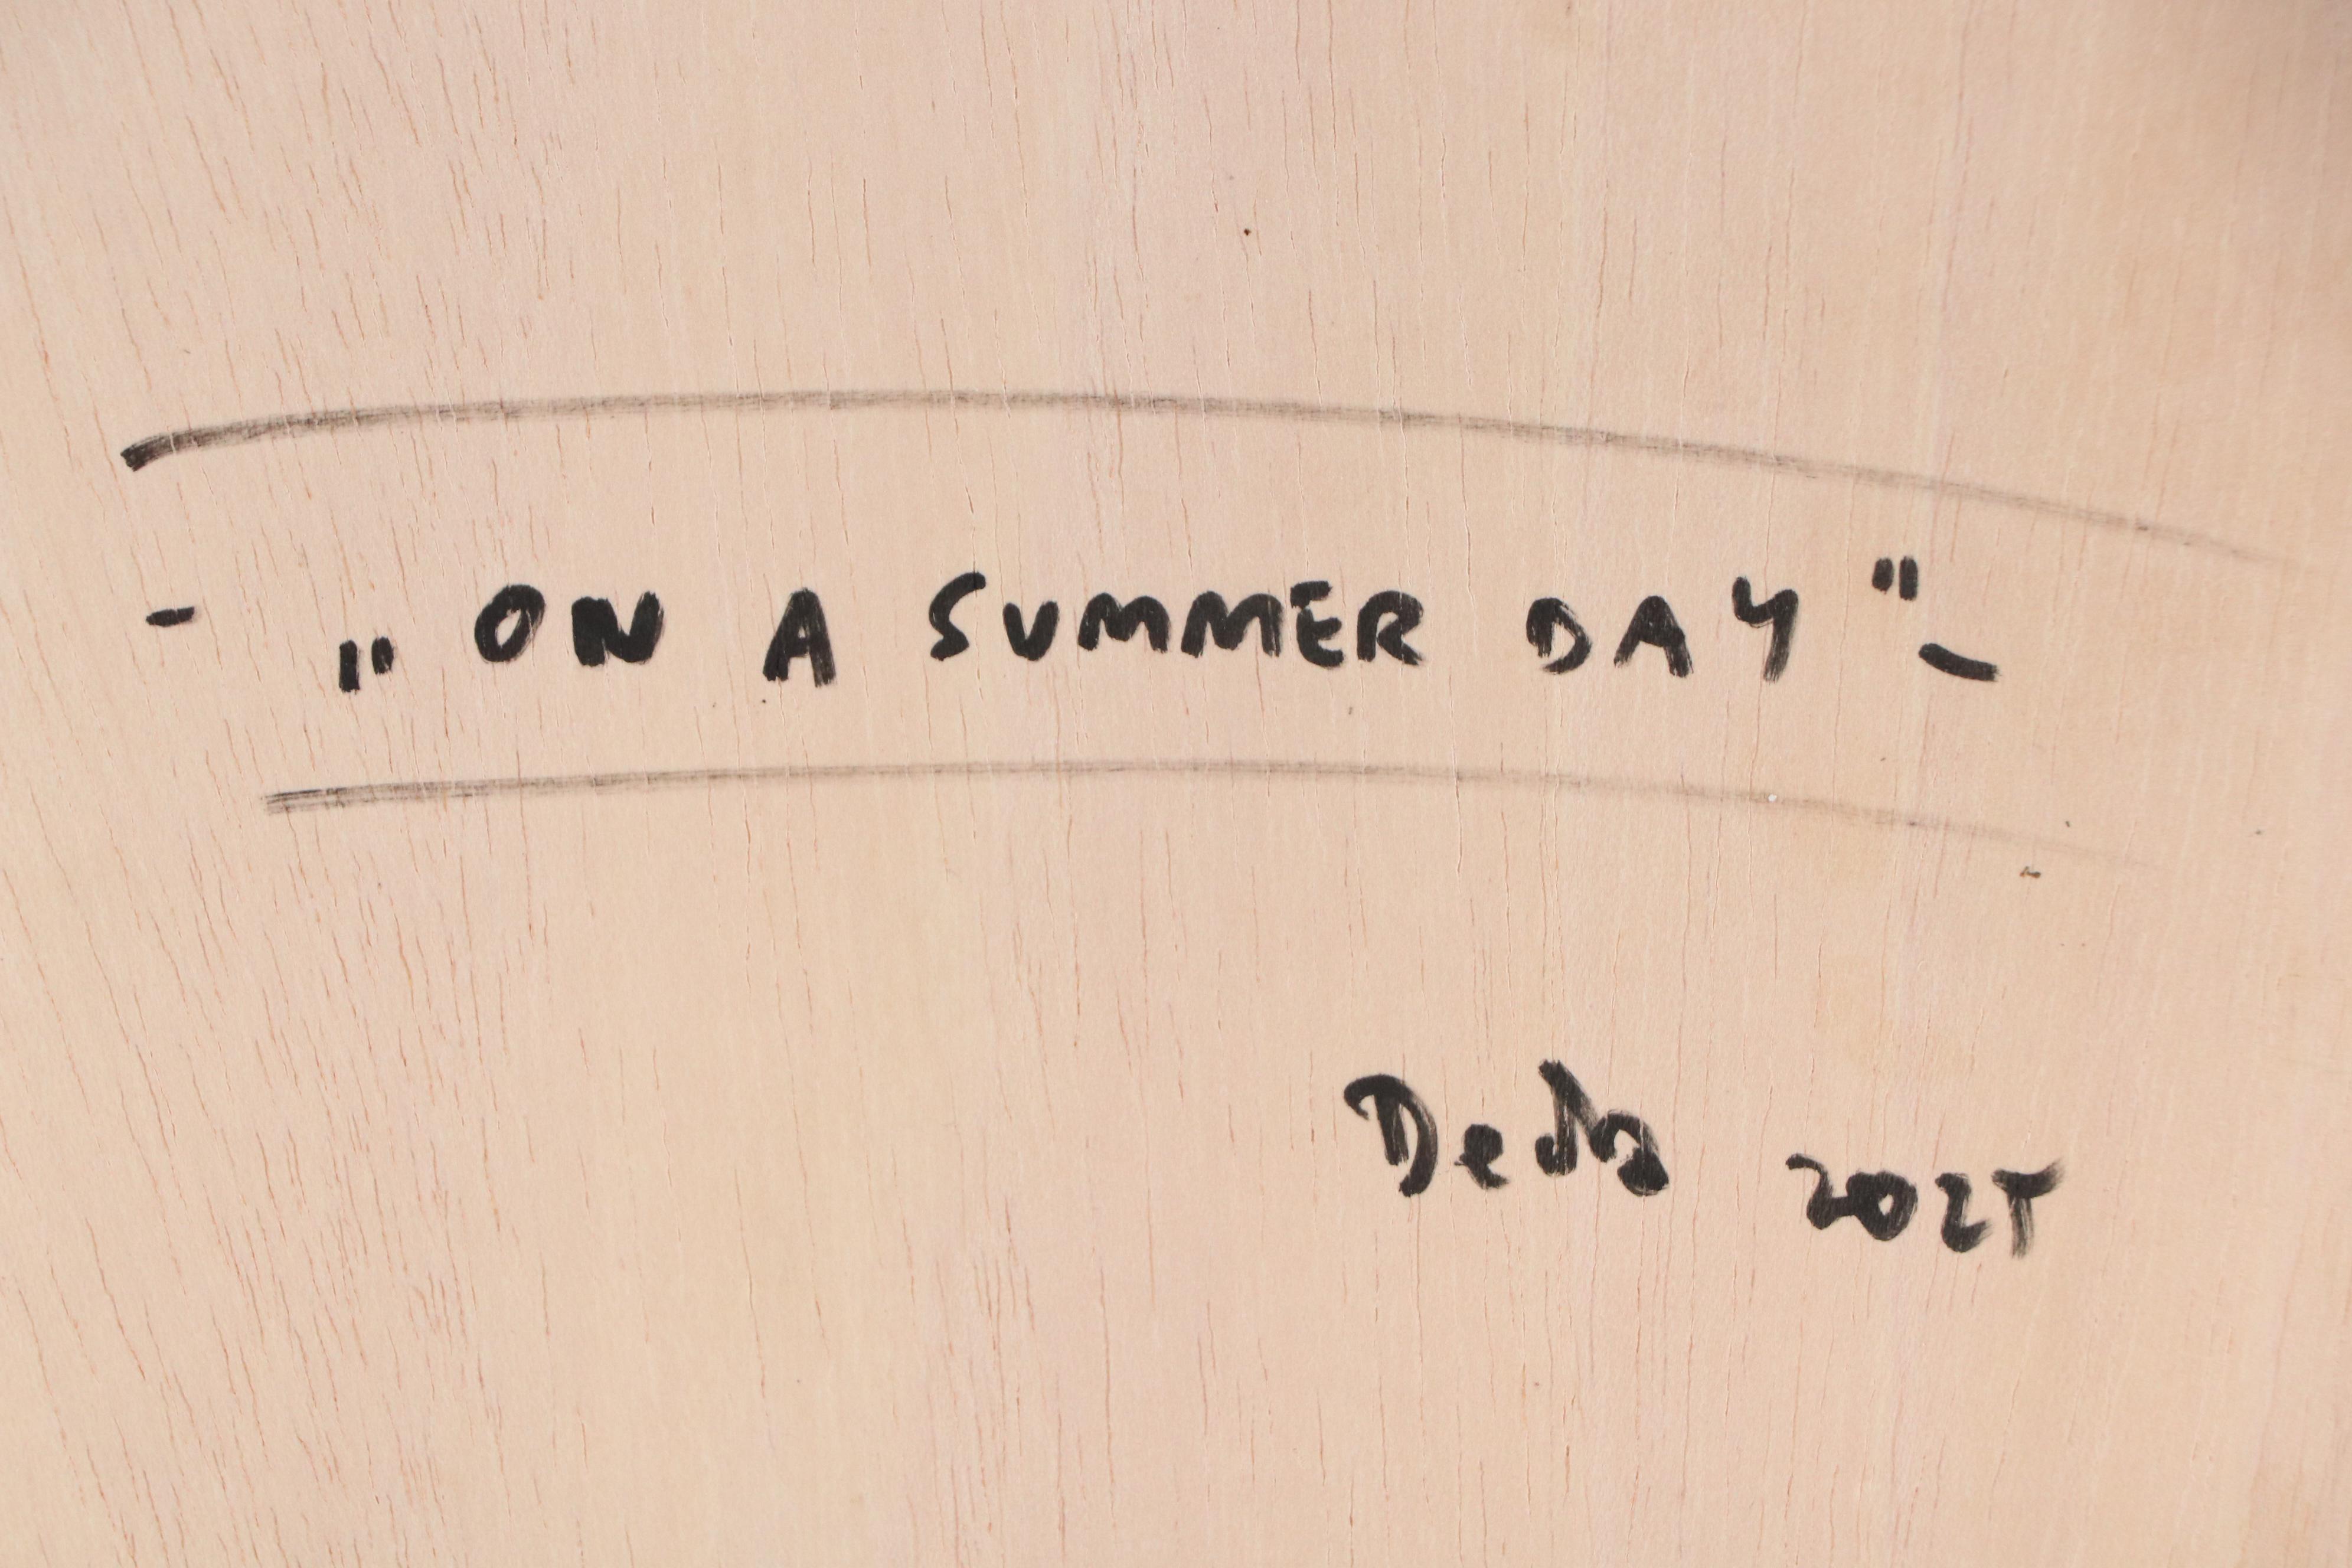 - „ ON A SUMMER DAY " -
2025